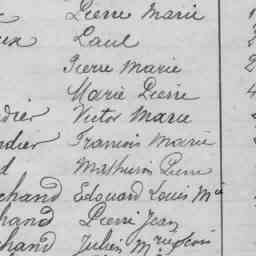 Pierre Marie
Paul
Pierre Marie
Marie Pierre
dier Victor Marie
dier François Marie
d Mathurin Pierre
chand Edouard Louis Mie
hand Pierre Jean
chand Julien